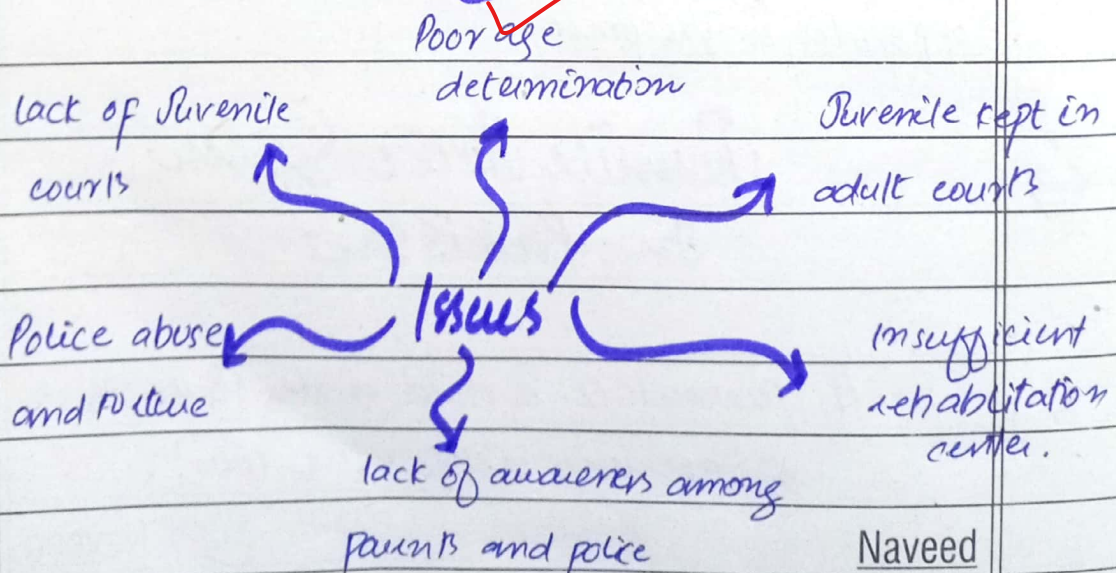 Poor age
determination
lack of Juvenile
courts
Juvenile kept in
adult courts
Issues
Police abuse
and torture
Insufficient
rehabilitation
center.
lack of awareness among
parents and police
Naveed